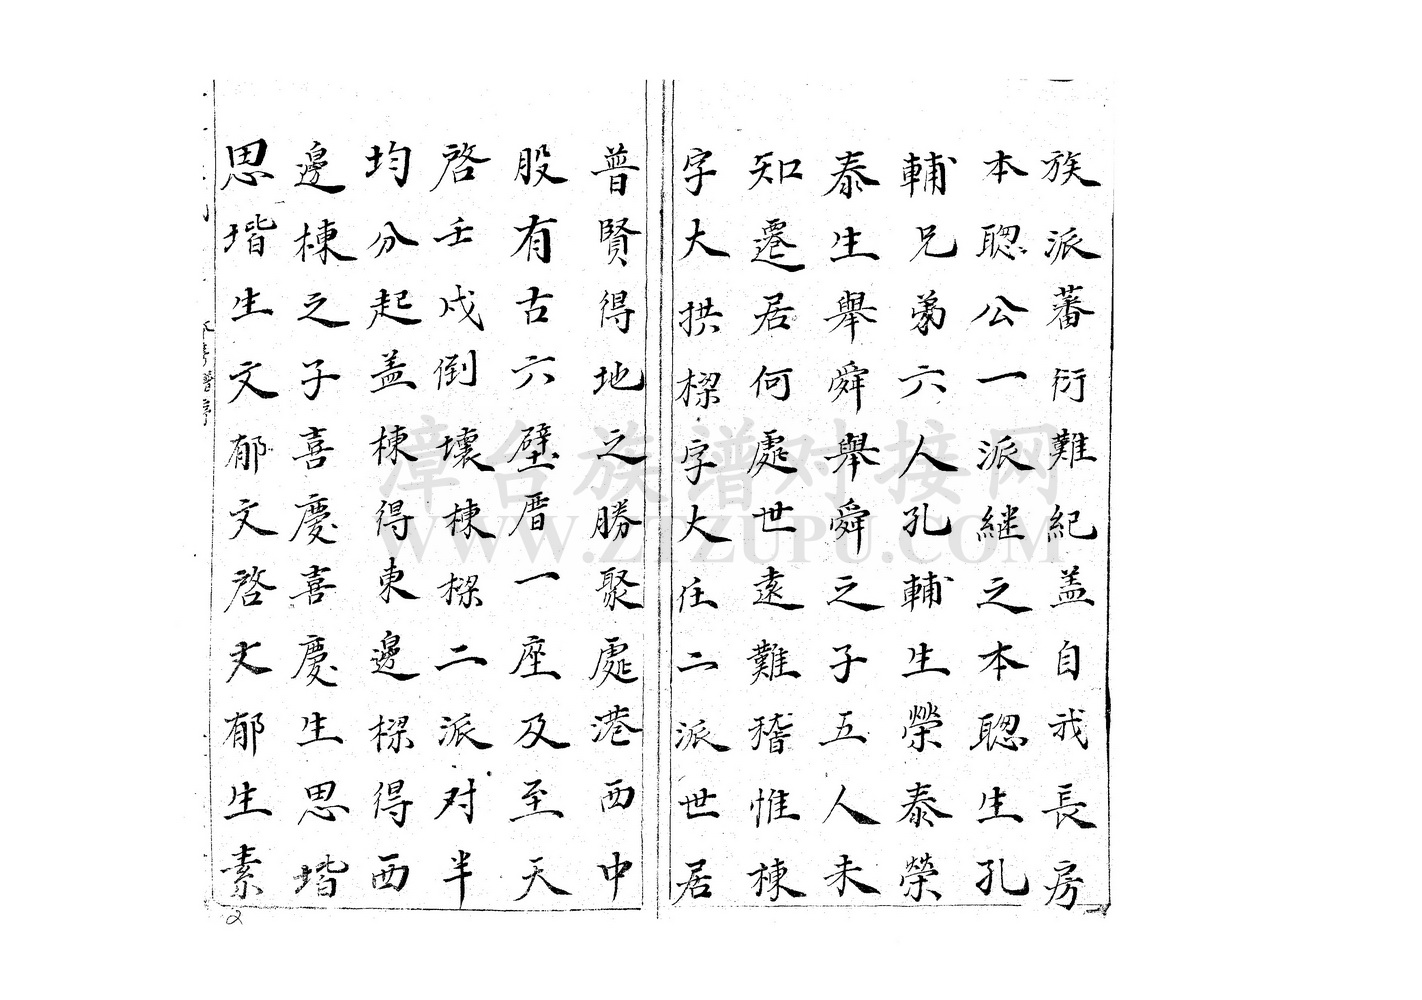 族派蕃衍難紀盖自我長房
本聰公一派継之本聰生孔
輔兄弟六人孔輔生榮泰榮
泰生舉舜舉舜之子五人未
知遷居何處世遠難稽惟棟
字大拱樑字大任二派世居
普賢得地之勝聚處港西中
股有古六壁厝一座及至天
啓壬戌倒壞棟樑二派对半
均分起盖棟得東邊樑得西
邊棟之子喜慶喜慶生思堦
思堦生文郁文啓文郁生素
漳台族谱对接网
WWW.ZTZUPU.COM
2